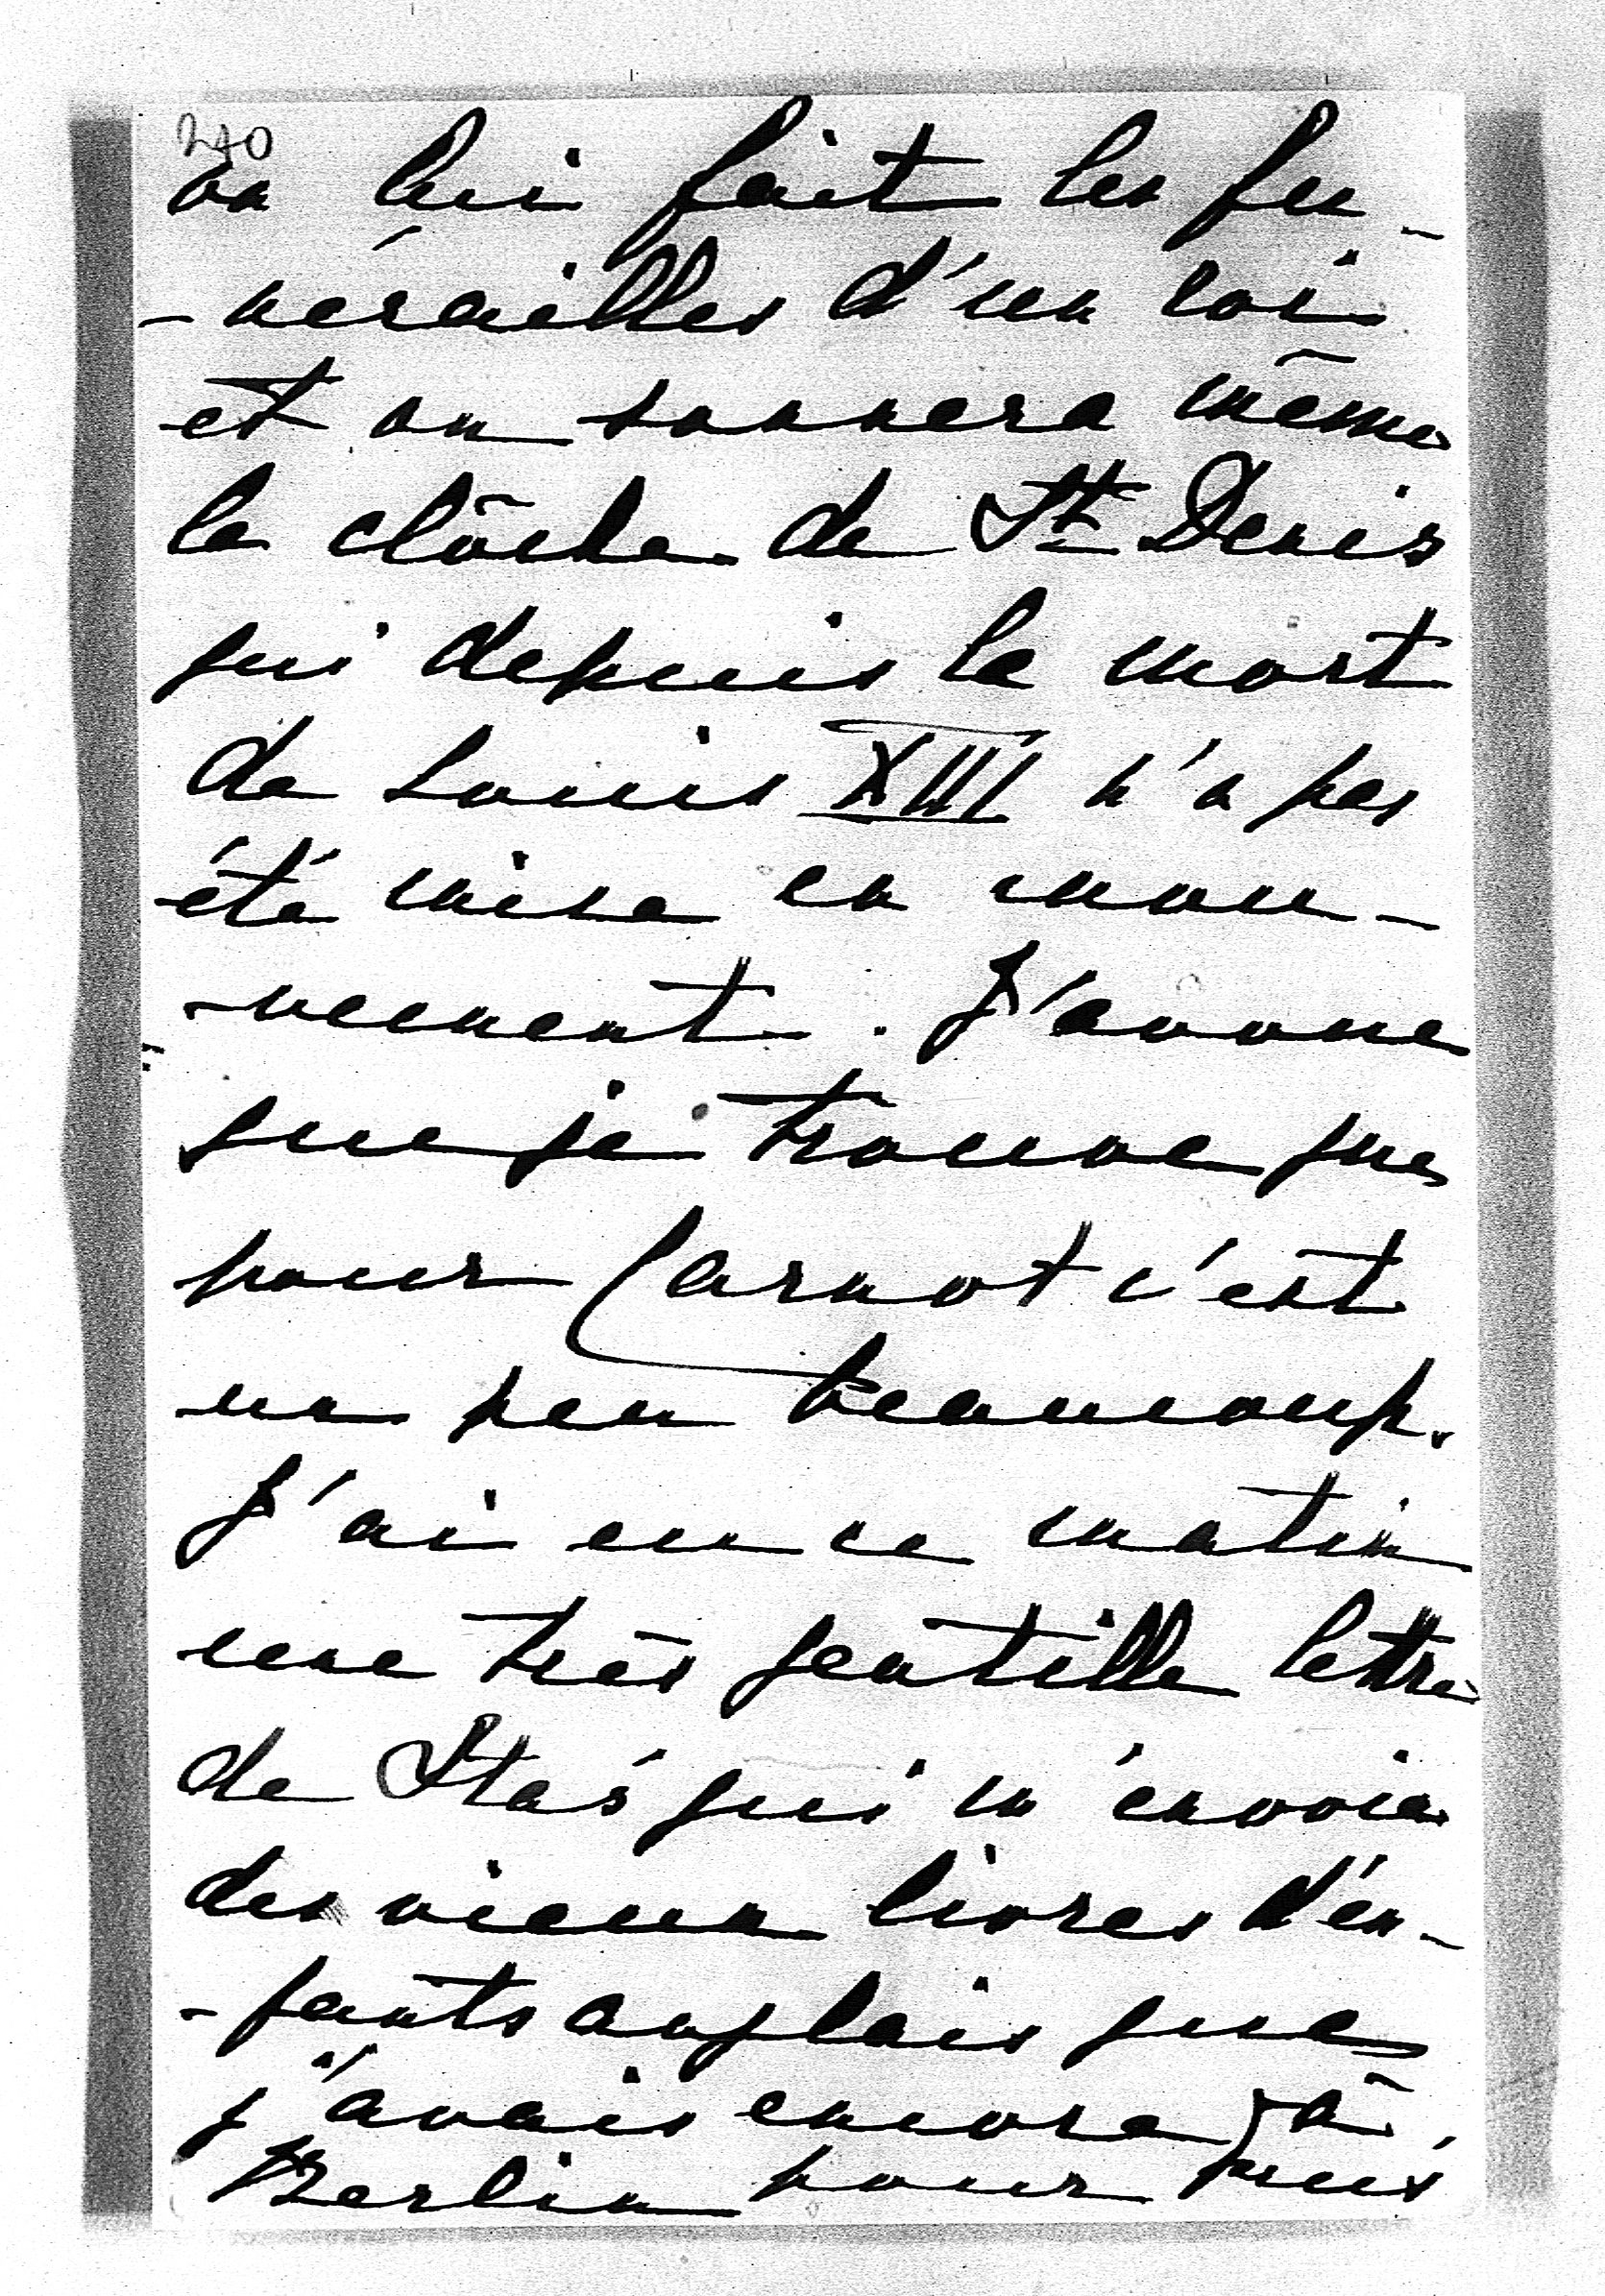 240
on lui fait les fu-
-nérailles d'un roi
et on sonnera même
la clôche de St Denis
qui depuis la mort
de Louis XIII n'a pas
été mise en mou-
-vement. J'avoue
que je trouve que
pour Carnot c'est
un peu beaucoup.
J'ai eu ce matin
une très gentille lettre
de Staś qui m'envoie
des vieux livres d'en-
-fants anglais que
j'avais encore à
Berlin pour